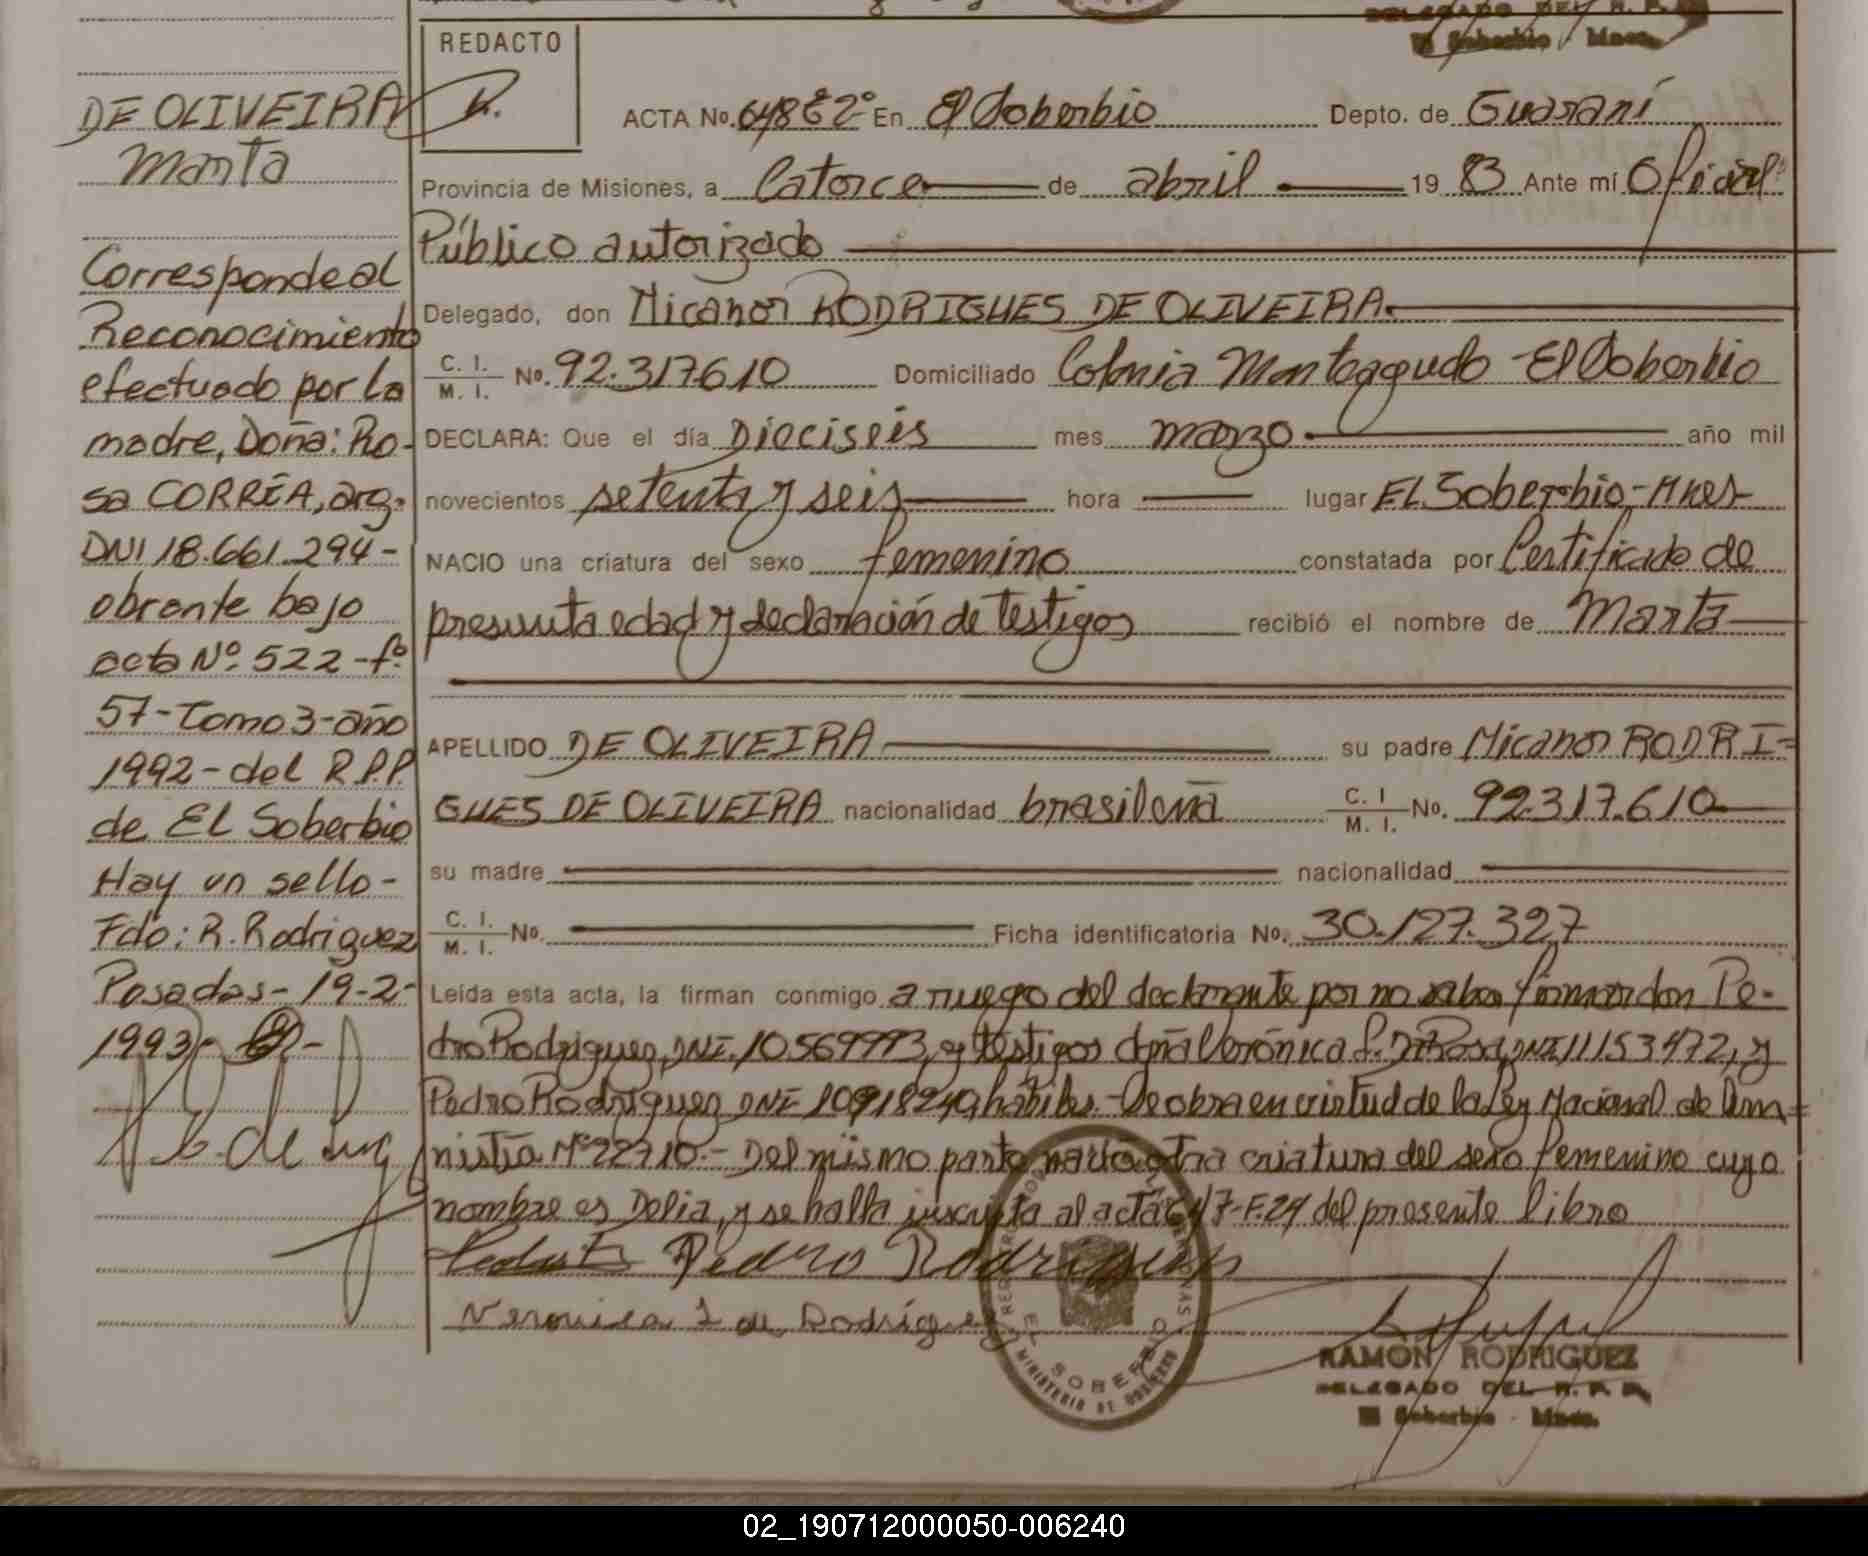 DELEGADO DEL R. P.
El Soberbio - Mnes.
REDACTO
DE OLIVEIRA
Marta
Corresponde al
Reconocimiento
efectuado por la
madre, Doña: Ro-
sa CORRÉA, arg.
DNI 18.661.294-
obrante bajo
acta Nº 522-fº
57-Tomo 3-año
1992-del R.P.P.
de El Soberbio
Hay un sello-
Fdo: R. Rodriguez
Posadas-19-2-
1993-
ACTA No. En El Soberbio Depto. de Guaraní
Provincia de Misiones, a Catorce de abril 19 83 Ante mí Oficial
Público autorizado
Delegado, don Nicanor RODRIGUES DE OLIVEIRA.
C. I. M. I. No. 92.317610 Domiciliado Colonia Monteagudo - El Soberbio
DECLARA: Que el día Dieciseis mes marzo año mil
novecientos setenta y seis hora lugar El Soberbio-Mnes-
NACIO una criatura del sexo femenino constatada por Certificado de
presunta edad y declaración de Testigos recibió el nombre de Marta
APELLIDO DE OLIVEIRA su padre Nicanor RODRI-
GUES DE OLIVEIRA nacionalidad brasileña C. I M. I. No. 92.317.610
su madre nacionalidad
C. I. M. I. No. Ficha identificatoria No. 30.127.327
Leída esta acta, la firman conmigo a ruego del declarante por no saber firmar don Pe-
dro Rodriguez, DNI. 10569993, y testigos doña Verónica DNI 11153472, y
Pedro Rodriguez DNI 10918240, hábiles.- Se obra en virtud de la Ley Nacional de Am-
nistía Nº 22710.- Del mismo parto nació otra criatura del sexo femenino cuyo
nombre es Delia, y se halla inscripta al acta 647-F.24 del presente libro
Pedro Rodriguez
Veronica de Rodríguez
EL SOBERBIO
MINISTERIO DE GOBIERNO
RAMON RODRIGUEZ
DELEGADO DEL R. P. P.
El Soberbio - Mnes.
02_190712000050-006240